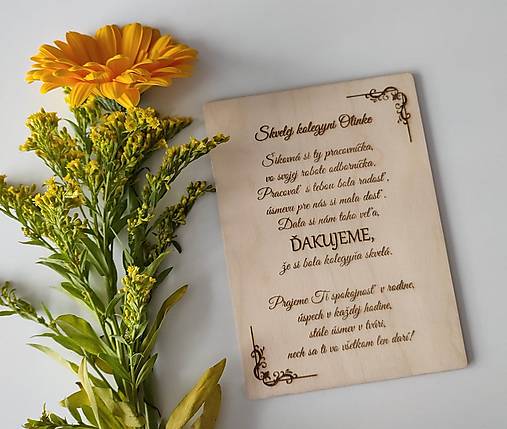 Skvelej kolegyni Olinke
Šikovná si ty pracovníčka,
vo svojej robote odborníčka.
Pracovať s tebou bola radosť,
úsmevu pre nás si mala dosť.
Dala si nám toho veľa,
ĎAKUJEME,
že si bola kolegyňa skvelá.
Prajeme Ti spokojnosť v rodine,
úspech v každej hodine,
stále úsmev v tvári,
nech sa ti vo všetkom len darí!